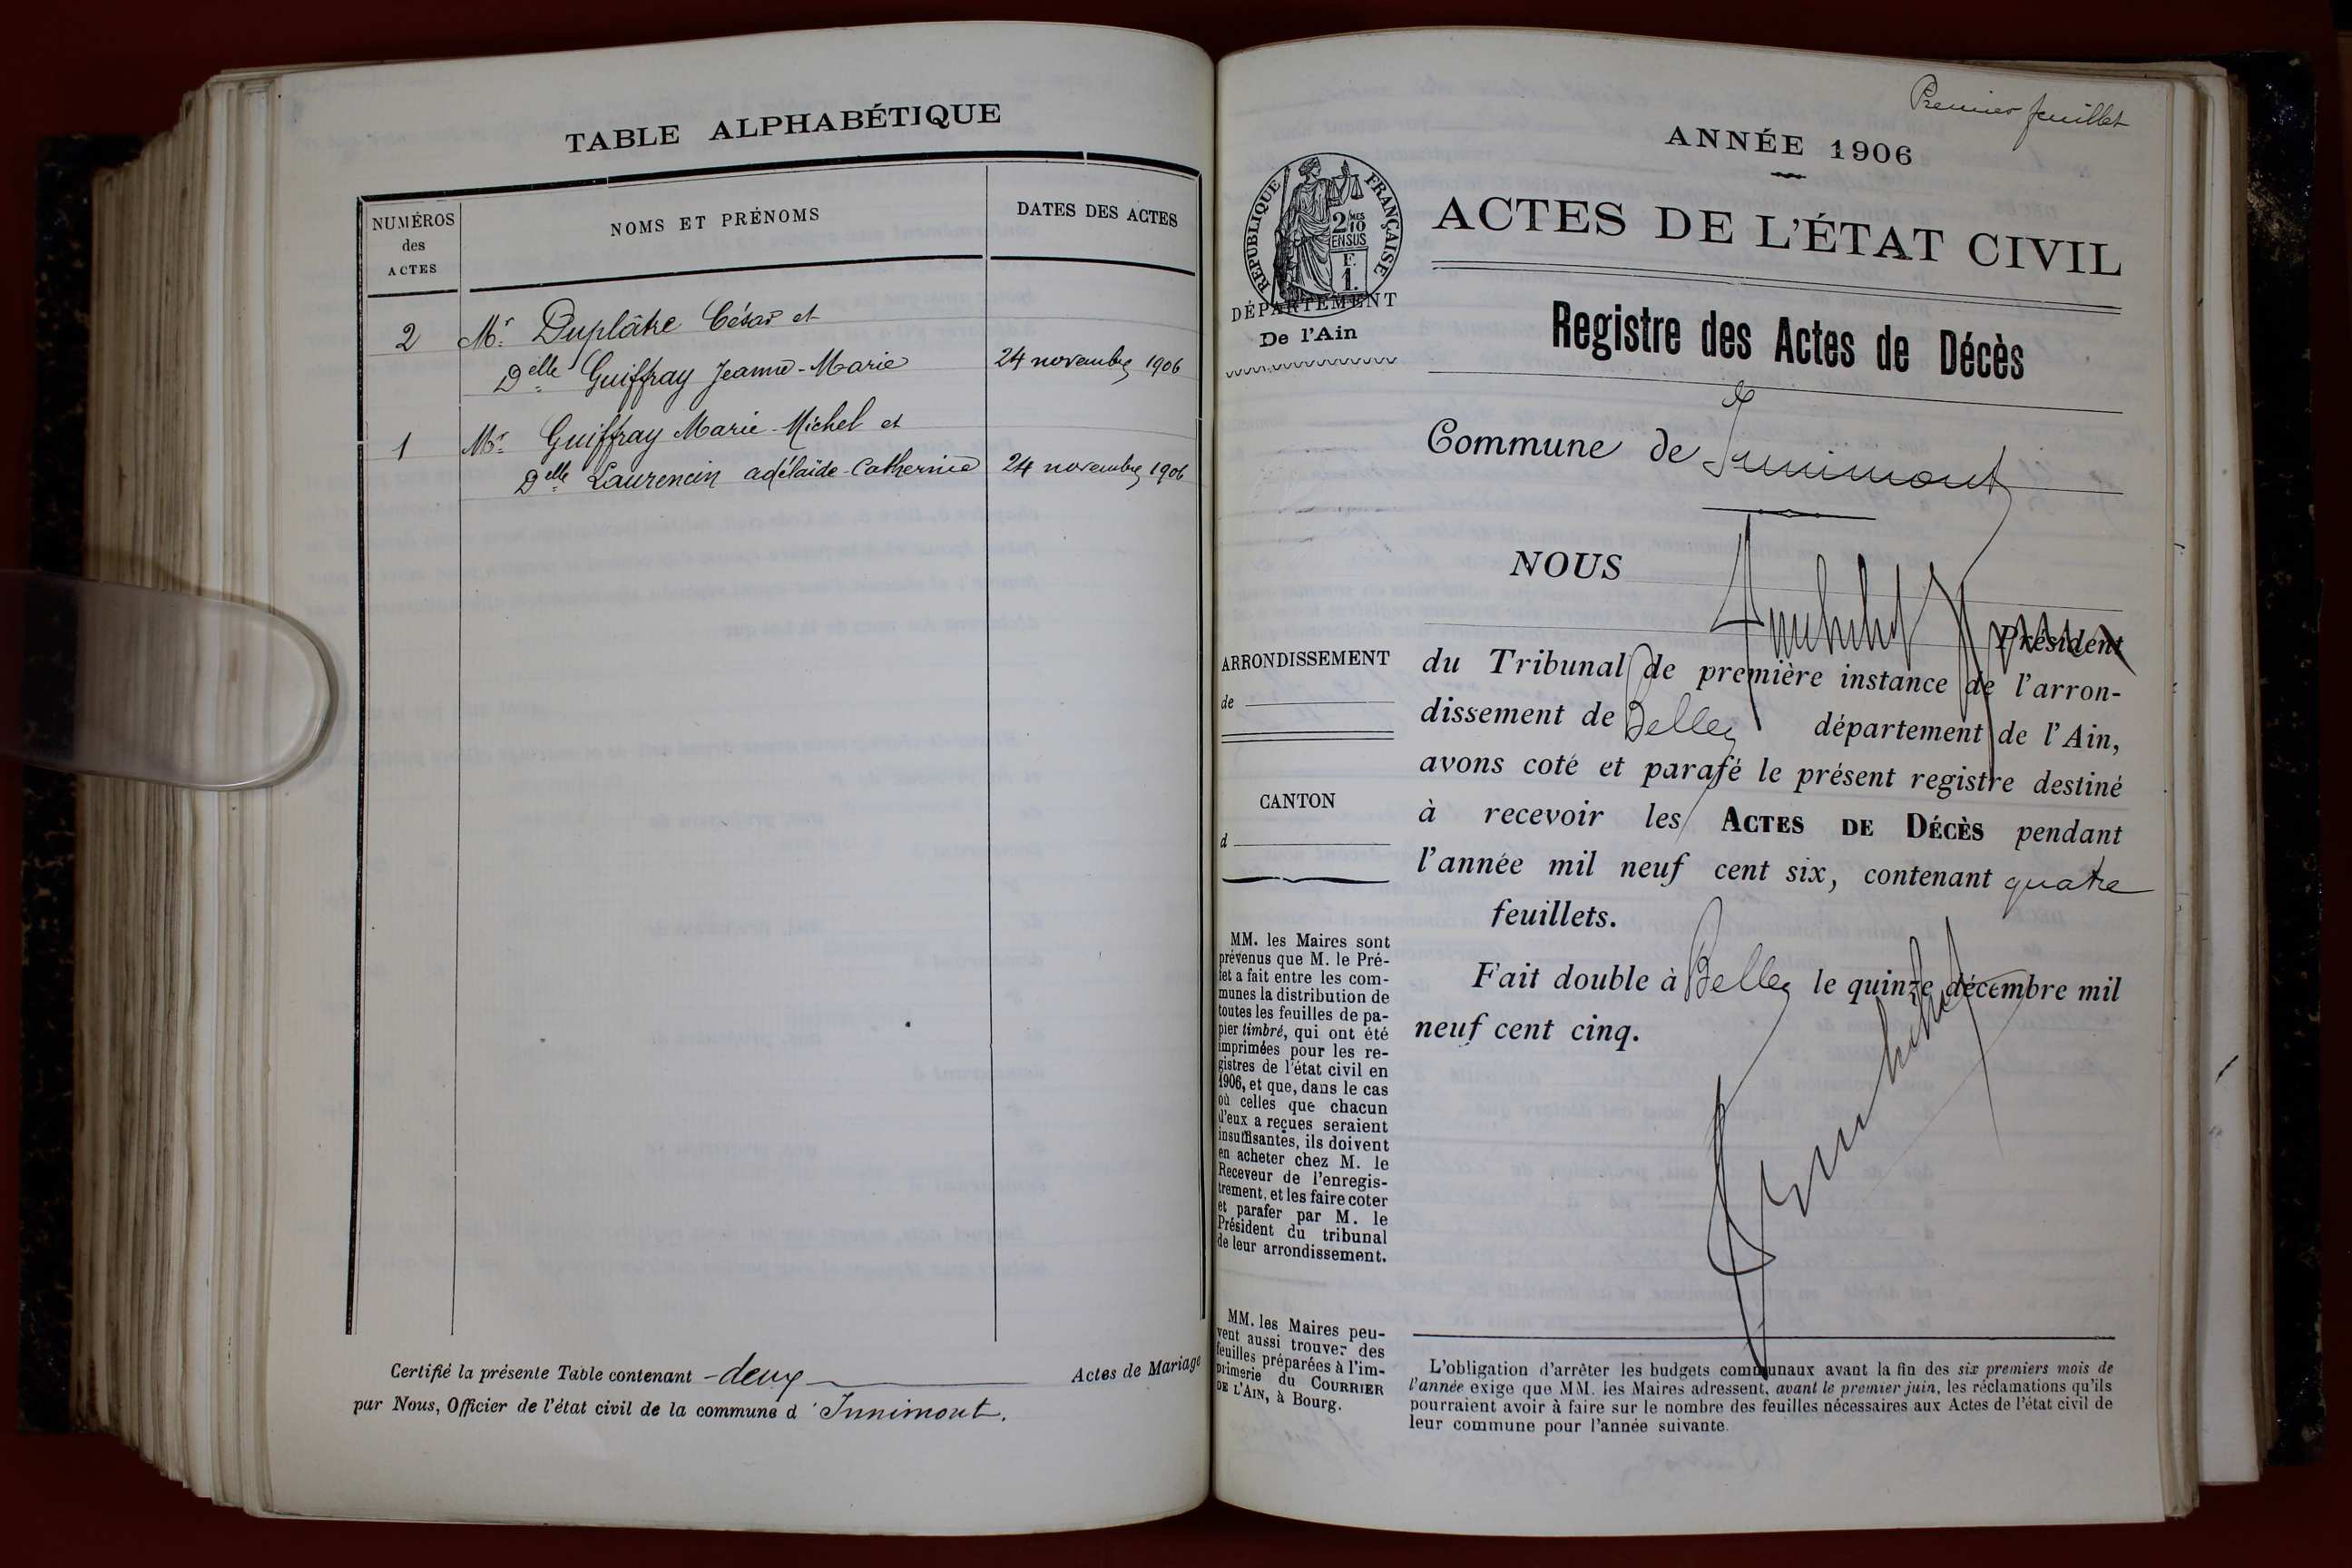 TABLE ALPHABÉTIQUE
NUMÉROS
des
ACTES
NOMS ET PRÉNOMS
DATES DES ACTES
2 Mr. Duplâtre César et
Delle Guiffray Jeanne-Marie 24 novembre 1906
1 Mr. Guiffray Marie-Michel et
Delle Laurencin adélaïde-Catherine 24 novembre 1906
Certifié la présente Table contenant - deux Actes de Mariage
par Nous, Officier de l'état civil de la commune d'Innimont.
Premier feuillet
ANNÉE 1906
RÉPUBLIQUE FRANÇAISE
2 MES
10
EN SUS
F.
1.
DÉPARTEMENT
De l'Ain
ACTES DE L'ÉTAT CIVIL
Registre des Actes de Décès
Commune de Innimont
NOUS
Président
du Tribunal de première instance de l'arron-
dissement de Belley département de l'Ain,
avons coté et parafé le présent registre destiné
à recevoir les ACTES DE DÉCÈS pendant
l'année mil neuf cent six, contenant quatre
feuillets.
Fait double à Belley le quinze décembre mil
neuf cent cinq.
ARRONDISSEMENT
de
CANTON
d
MM. les Maires sont
prévenus que M. le Pré-
fet a fait entre les com-
munes la distribution de
toutes les feuilles de pa-
pier timbré, qui ont été
imprimées pour les re-
gistres de l'état civil en
1906, et que, dans le cas
où celles que chacun
d'eux a reçues seraient
insuffisantes, ils doivent
en acheter chez M. le
Receveur de l'enregis-
trement, et les faire coter
et parafer par M. le
Président du tribunal
de leur arrondissement.
MM. les Maires peu-
vent aussi trouver des
feuilles préparées à l'im-
primerie du COURRIER
DE L'AIN, à Bourg.
L'obligation d'arrêter les budgets communaux avant la fin des six premiers mois de
l'année exige que MM. les Maires adressent, avant le premier juin, les réclamations qu'ils
pourraient avoir à faire sur le nombre des feuilles nécessaires aux Actes de l'état civil de
leur commune pour l'année suivante.